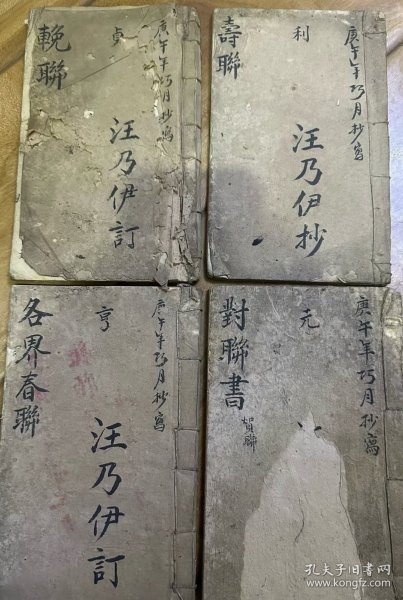 輓聯
貞
庚午年巧月抄寫
汪乃伊訂
壽聯
利
庚午年巧月抄寫
汪乃伊抄
各界春聯
亨
庚午年巧月抄寫
汪乃伊訂
對聯書
賀聯
元
庚午年巧月抄寫
孔夫子旧书网
www.kongfz.com